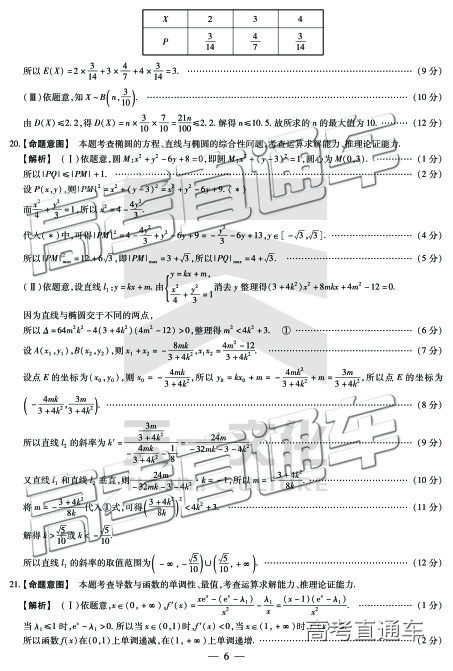 X 2 3 4
P 3/14 4/7 3/14
所以 E(X)=2×3/14+3×4/7+4×3/14=3. (9分)
(Ⅲ)依题意,知 X~B(n,3/10). (10分)
由 D(X)≤2.2,得 D(X)=n×3/10×7/10=21n/100≤2.2. 解得 n≤10.5. 故所求的 n 的最大值为 10. (12分)
20.【命题意图】 本题考查椭圆的方程、直线与椭圆的综合性问题,考查运算求解能力、推理论证能力.
【解析】 (Ⅰ)依题意,圆 M:x²+y²-6y+8=0,即圆 M:x²+(y-3)²=1,圆心为 M(0,3). (1分)
所以|PQ|≤|PM|+1. (2分)
设 P(x,y),则|PM|²=x²+(y-3)²=x²+y²-6y+9. (*)
而x²/4+y²/3=1,所以 x²=4-4y²/3.
代入(*)中,可得|PM|²=4-4y²/3+y²-6y+9=-y²/3-6y+13,y∈[-√3,√3]. (4分)
所以|PM|²max=12+6√3,即|PM|max=3+√3,所以|PQ|max=4+√3. (5分)
(Ⅱ)依题意,设直线 l₁:y=kx+m. 由{y=kx+m, x²/4+y²/3=1 消去 y 整理得(3+4k²)x²+8mkx+4m²-12=0.
因为直线与椭圆交于不同的两点,
所以 Δ=64m²k²-4(3+4k²)(4m²-12)>0,整理得 m²<4k²+3. ① (6分)
设 A(x₁,y₁),B(x₂,y₂),则 x₁+x₂=-8mk/(3+4k²),x₁x₂=(4m²-12)/(3+4k²). (7分)
设点 E 的坐标为(x₀,y₀),则 x₀=-4mk/(3+4k²),所以 y₀=kx₀+m=-4mk²/(3+4k²)+m=3m/(3+4k²),所以点 E 的坐标为
(-4mk/(3+4k²),3m/(3+4k²)). (8分)
所以直线 l₂ 的斜率为 k'=(3m/(3+4k²))/(-4mk/(3+4k²)-1/8)=24m/(-32mk-3-4k²). (9分)
又直线 l₁ 和直线 l₂ 垂直,则24m/(-32mk-3-4k²)·k=-1,所以 m=-(3+4k²)/8k. (10分)
将 m=-(3+4k²)/8k代入①式,可得((3+4k²)/8k)²<4k²+3. (11分)
解得 k>√5/10或 k<-√5/10.
所以直线 l₁ 的斜率的取值范围为(-∞,-√5/10)∪(√5/10,+∞). (12分)
21.【命题意图】 本题考查导数与函数的单调性、最值,考查运算求解能力、推理论证能力.
【解析】 (Ⅰ)依题意,x∈(0,+∞),f'(x)=(xeˣ-(eˣ-λ₁))/x²-λ₁/x=(x-1)(eˣ-λ₁)/x². (1分)
当 λ₁≤1 时,eˣ-λ₁>0. 所以当 x∈(0,1)时,f'(x)<0,当 x∈(1,+∞)时
所以函数 f(x)在(0,1)上单调递减,在(1,+∞)上单调递增. (2分)
— 6 —
高考直通车
高考直通车
高考直通车